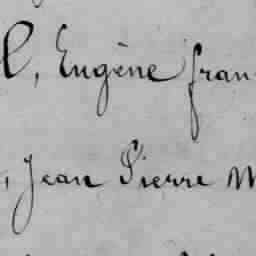 l, Eugène fran
, Jean Pierre M